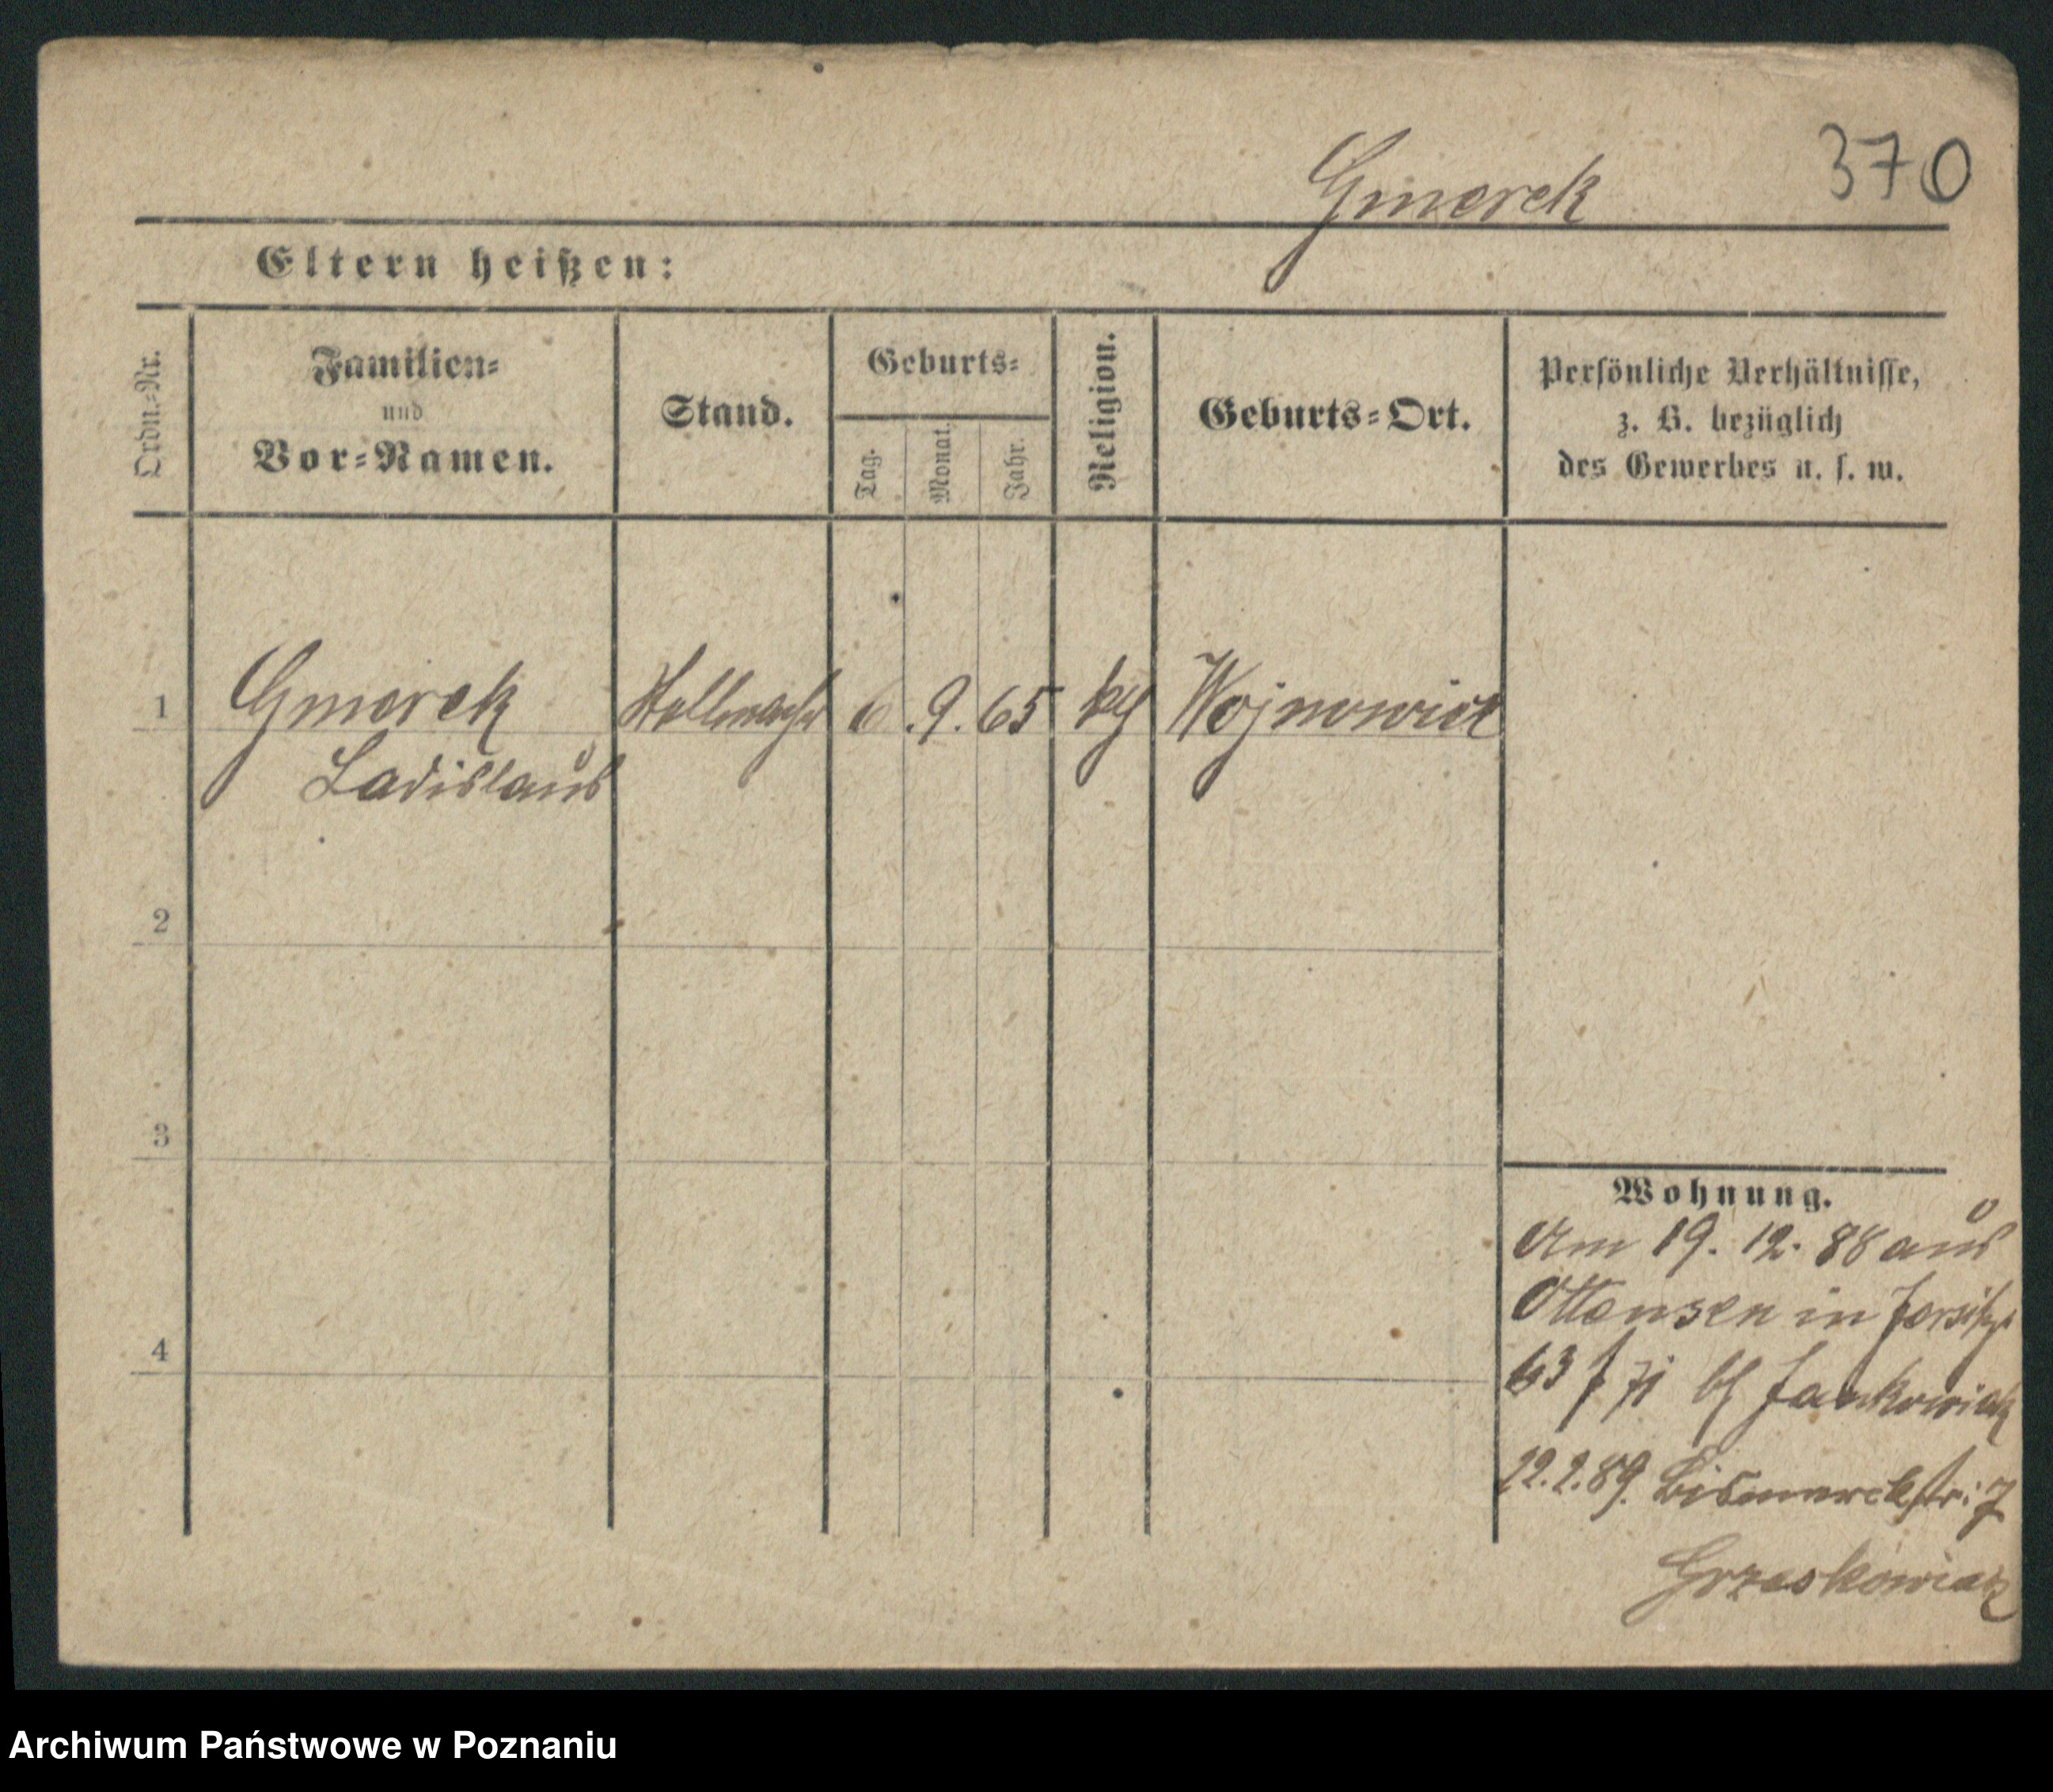 370
Gmerek
Eltern heißen:
Ordn.-Nr.
Familien-
und
Vor-Namen.
Stand.
Geburts-
Tag.
Monat.
Jahr.
Religion.
Geburts-Ort.
Persönliche Verhältnisse,
z. B. bezüglich
des Gewerbes u. s. w.
1 Gmerek Stellmacher 6. 9. 65 kth Wojnowice
Ladislaus
2
3
4
Wohnung.
Am 19. 12. 88 aus
Ottensen in
63 bei Jankowiak
22.2.89. Bismarckstr: 7
Grzeskowiak
Archiwum Państwowe w Poznaniu